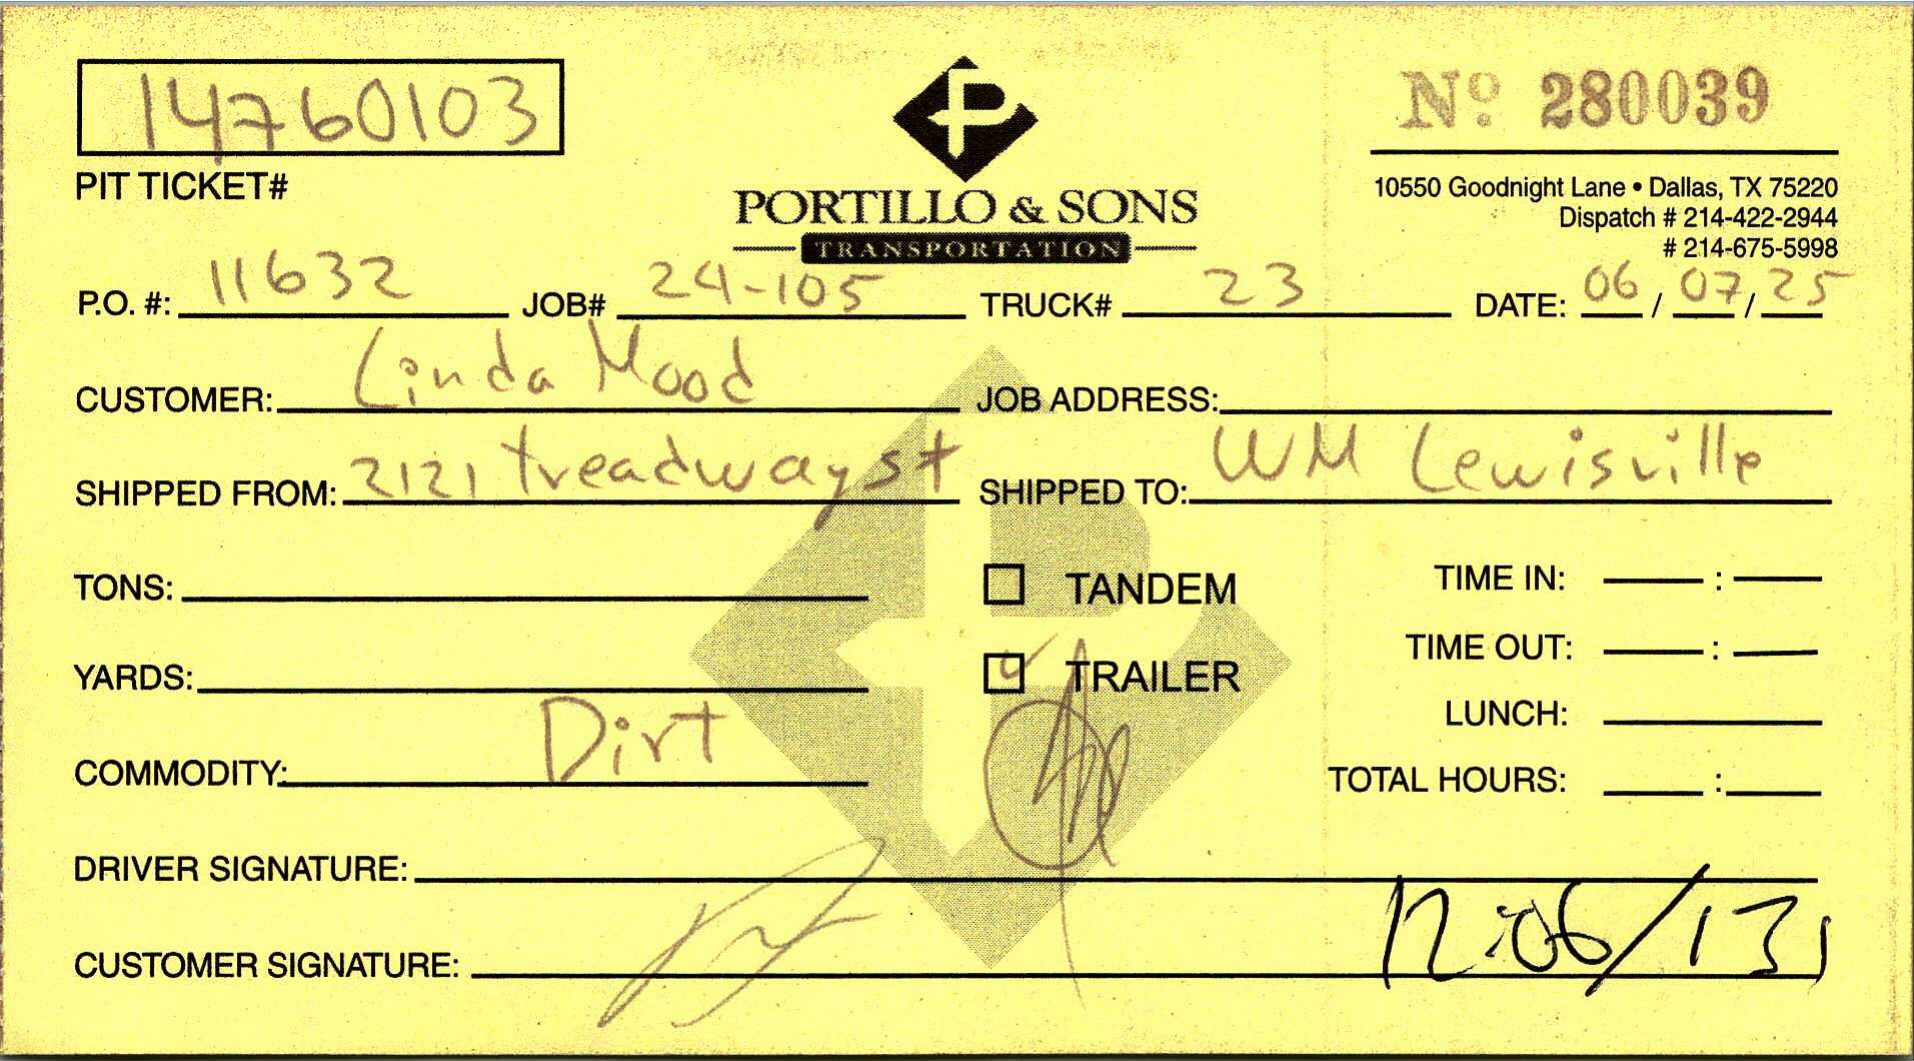 14760103
PIT TICKET#
PORTILLO & SONS
TRANSPORTATION
Nº 280039
10550 Goodnight Lane • Dallas, TX 75220
Dispatch # 214-422-2944
# 214-675-5998
P.O. #: 11632 JOB# 24-105 TRUCK# 23 DATE: 06 / 07 / 25
CUSTOMER: Linda Mood JOB ADDRESS:
SHIPPED FROM: 2121 treadway st SHIPPED TO: WM Lewisville
TONS: TANDEM TIME IN: :
YARDS: TRAILER TIME OUT: :
LUNCH:
COMMODITY: Dirt TOTAL HOURS: :
DRIVER SIGNATURE:
CUSTOMER SIGNATURE: 12:06/131